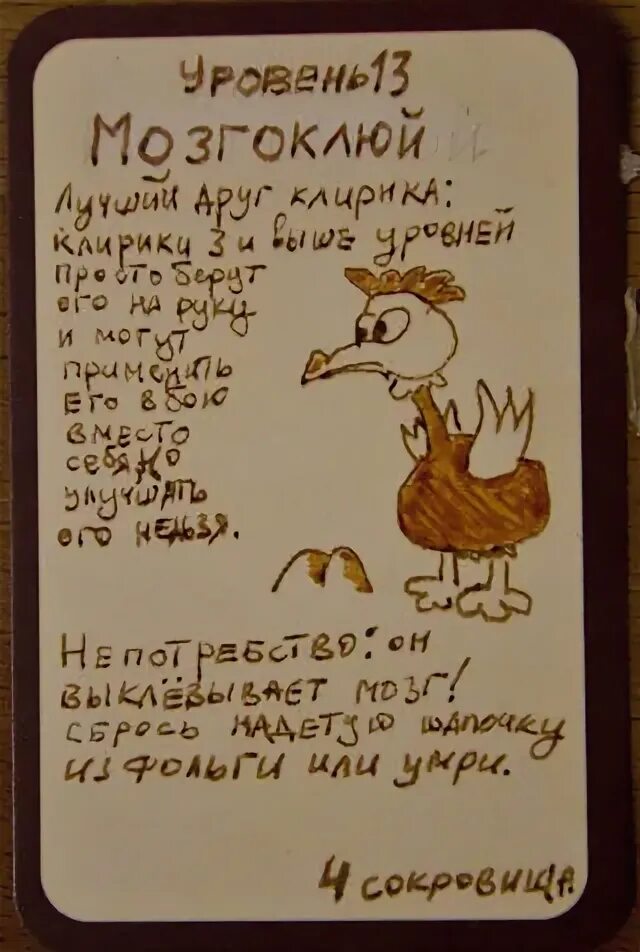 Уровень 13
Мозгоклюй
Лучший друг клирика:
клирики 3 и выше уровней
просто берут
его на руку
и могут
применить
его в бою
вместо
себя, но
улучшать
его нельзя.
Непотребство: он
выклёвывает мозг!
сбрось надетую шапочку
из фольги или умри.
4 сокровища